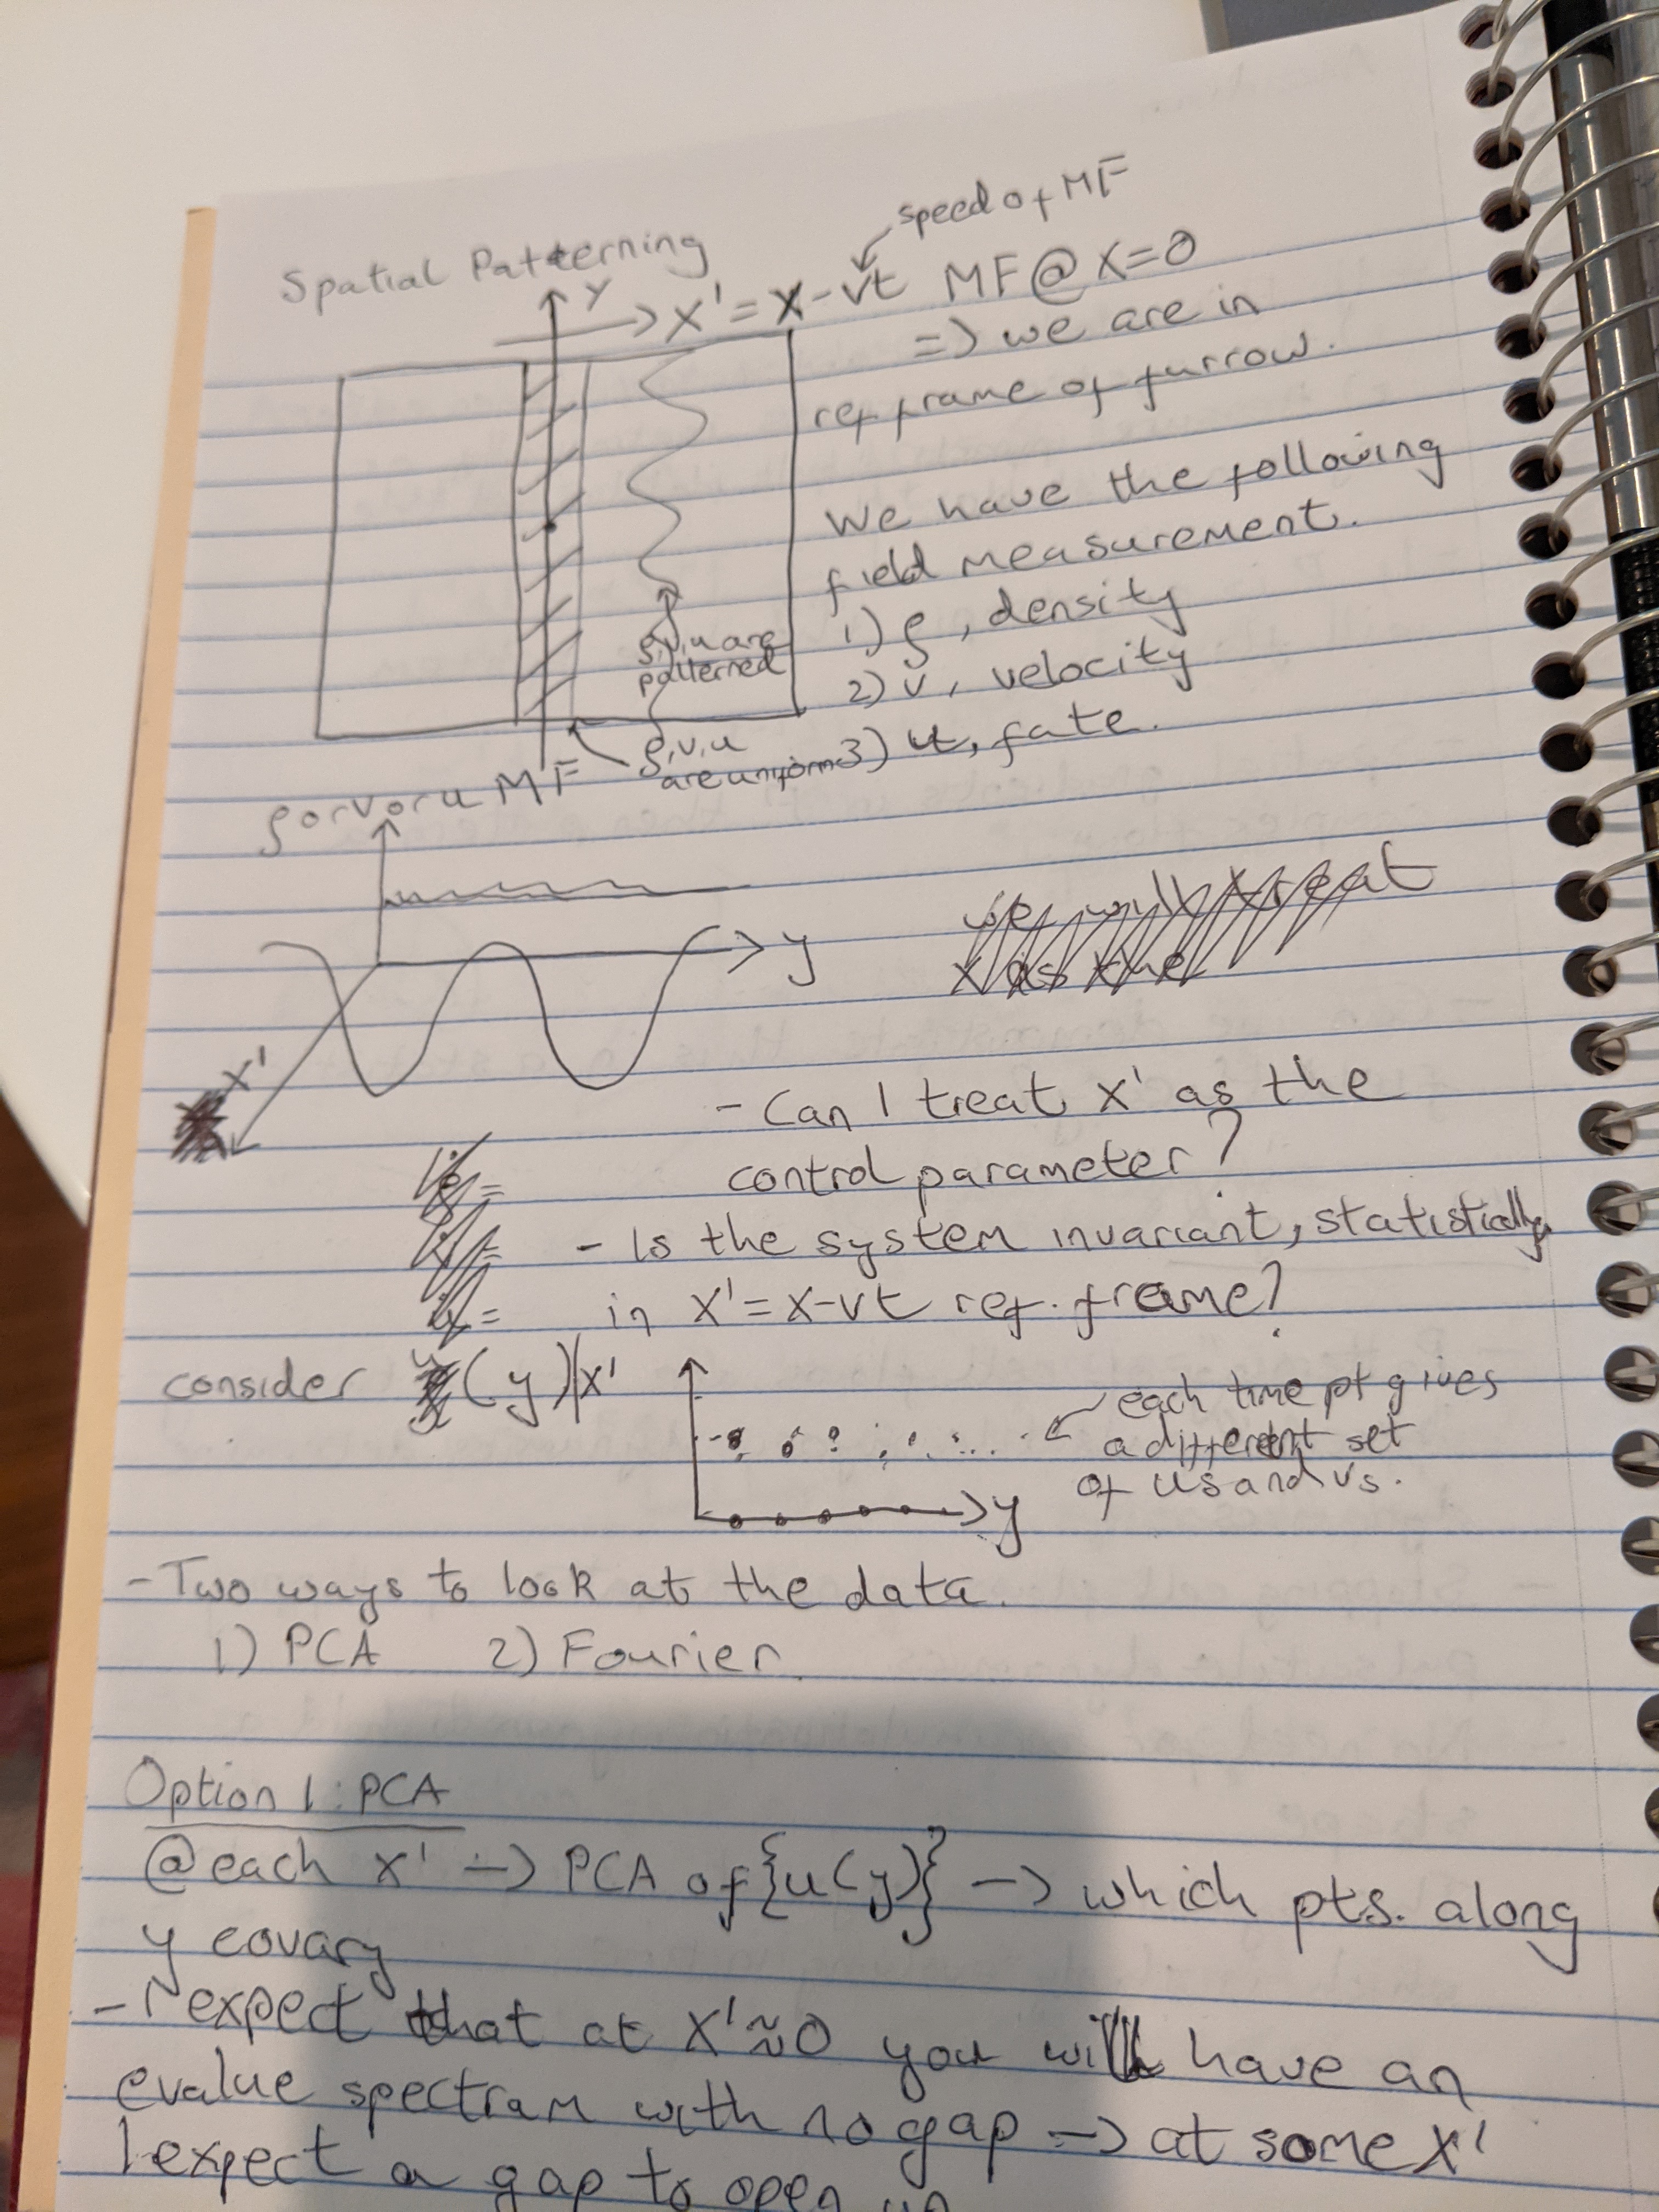 Spatial Patterning
speed of MF
y
x' = x - vt MF @ x=0
=> we are in
ref frame of furrow.
We have the following
field measurement.
1) ρ, density
2) v, velocity
3) u, fate.
ρ,v,u are
patterned
ρ,v,u
are uniform
MF
ρ or v or u
y
x'
we will treat
x as the
- Can I treat x' as the
control parameter?
- Is the system invariant, statistically
in x' = x-vt ref. frame?
consider u(y)|x'
each time pt gives
a different set
of us and vs.
y
- Two ways to look at the data.
1) PCA 2) Fourier.
Option 1: PCA
@ each x' -> PCA of {u(y)} -> which pts. along
y covary
- I expect that at x'≈0 you will have an
evalue spectrum with no gap -> at some x'
I expect a gap to open up